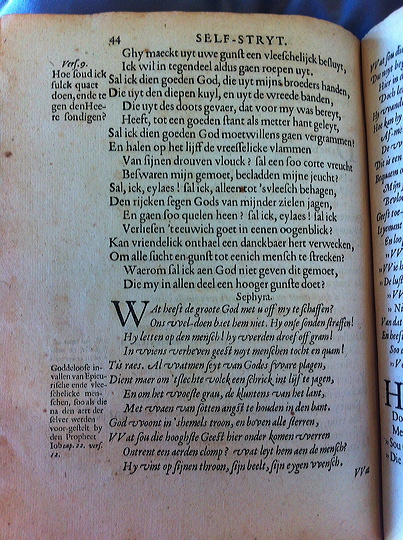 44 SELF-STRYT.
Ghy maeckt uyt uwe gunst een vleeschelijck besluyt,
Ick wil in tegendeel aldus gaen roepen uyt.
Sal ick dien goeden God, die uyt mijns broeders handen,
Die uyt den diepen kuyl, en uyt de vreede banden,
Die uyt des doots gevaer, dat voor my was bereyt,
Heeft, tot een goeden stant als metter hant geleyt,
Sal ick dien goeden God moetwillens gaen vergrammen?
En halen op het lijff de vreesselicke vlammen
Van sijnen droeven vlouck? sal een soo corte vreucht
Beswaren mijn gemoet, becladden mijne jeucht?
Sal, ick, eylaes! sal ick, alleen tot 'svleesch behagen,
Den rijcken segen Gods van mijnder zielen jagen,
En gaen soo quelen heen? sal ick, eylaes! sal ick
Verliesen 'teeuwich goet in eenen oogenblick?
Kan vriendelick onthael een danckbaer hert verwecken,
Om alle sucht en gunst tot eenich mensch te strecken?
Waerom sal ick aen God niet geven dit gemoet,
Die my in allen deel een hooger gunste doet?
Sephyra.
WAt heeft de groote God met u off my te schaffen?
Ons wel-doen baet hem niet. Hy onse sonden straffen!
Hy letten op den mensch! hy werden droef off gram!
In wiens verheven geest noyt menschen tocht en quam!
Tis raes. Al watmen seyt van Godes sware plagen,
Dient maer om 'tslechte volck een schrick int lijf te jagen,
En om het woeste grau, de kluntens van het lant,
Met vaern van sotten angst te houden in den bant.
God woont in 'shemels troon, en boven alle sterren,
Wat sou die hooghste Geest hier onder komen werren
Ontrent een aerden clomp? wat leyt hem aen de mensch?
Hy vint op sijnen throon, sijn beelt, sijn eygen wensch.
Vers. 9.
Hoe soud ick
sulck quaet
doen, ende te
gen den Hee-
re sondigen?
Goddeloose in-
vallen van Epicu-
rische ende vlee-
schelicke men-
schen, soo als die
na den aert der
selver werden
voor-gestelt by
den Propheet
Iob cap. 22. vers.
12.